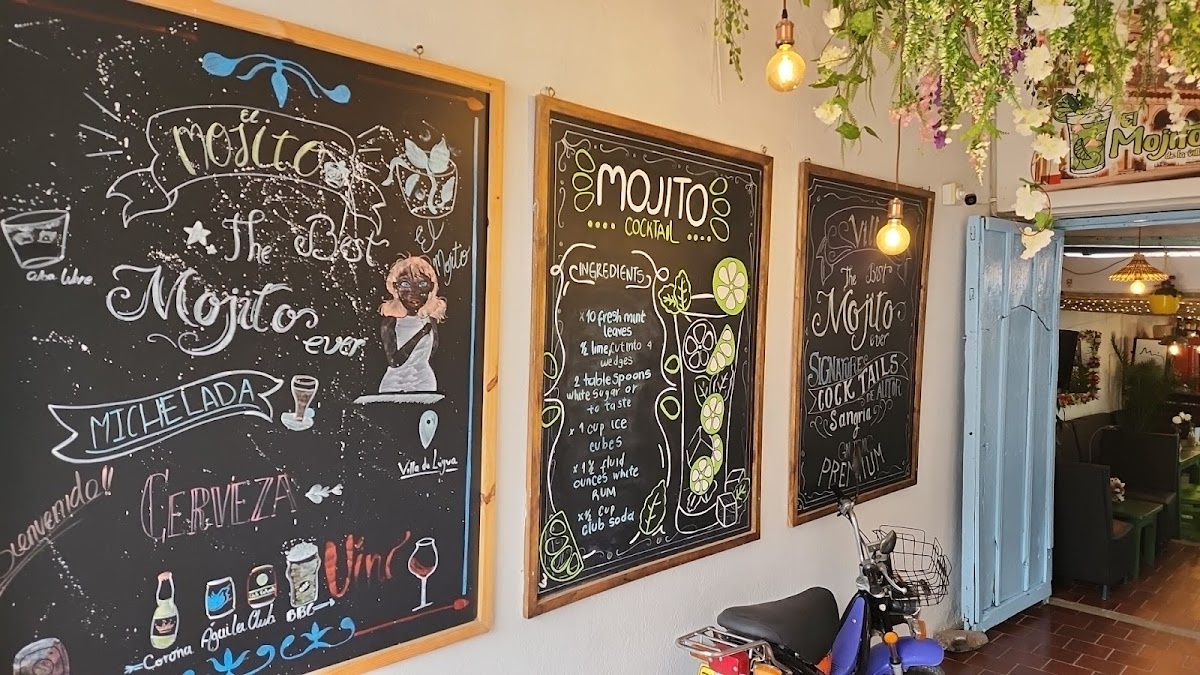 el
Mojito
The Best
Mojito
ever
El
Mojito
MICHELADA
Villa de Leyva
CERVEZA
Bienvenido!!
Vino
Corona
Aguila
Club
BBC
MOJITO
COCKTAIL
INGREDIENTS
x 10 fresh mint
leaves
½ lime, cut into 4
wedges
2 tablespoons
white sugar or
to taste
x 1 cup ice
cubes
x 1½ fluid
ounces white
RUM
x ½ cup
club soda
The Best
Mojito
ever
SIGNATURE
COCKTAILS
DE AUTOR
Sangria
y
PREMIUM
El
Mojito
de la